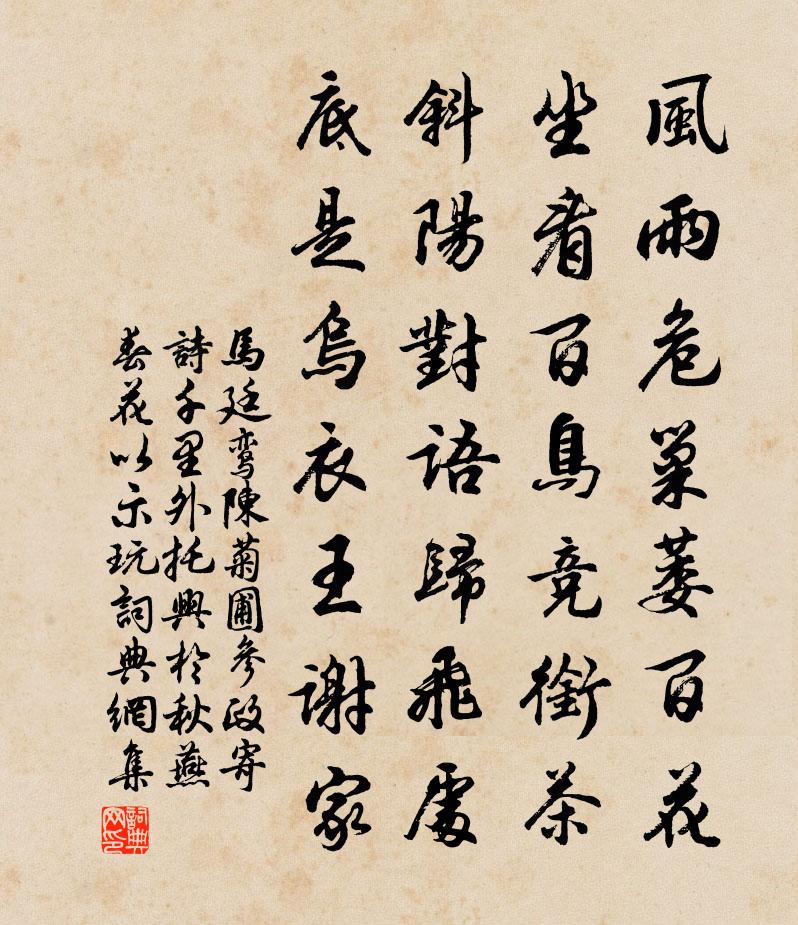 風雨危巢萎百花
坐看百鳥竞銜茶
斜陽對語歸飛處
底是烏衣王謝家
馬廷鸾陳菊圃參政寄
詩千里外托興於秋燕
春花以示玩詞典網集
詞典网印